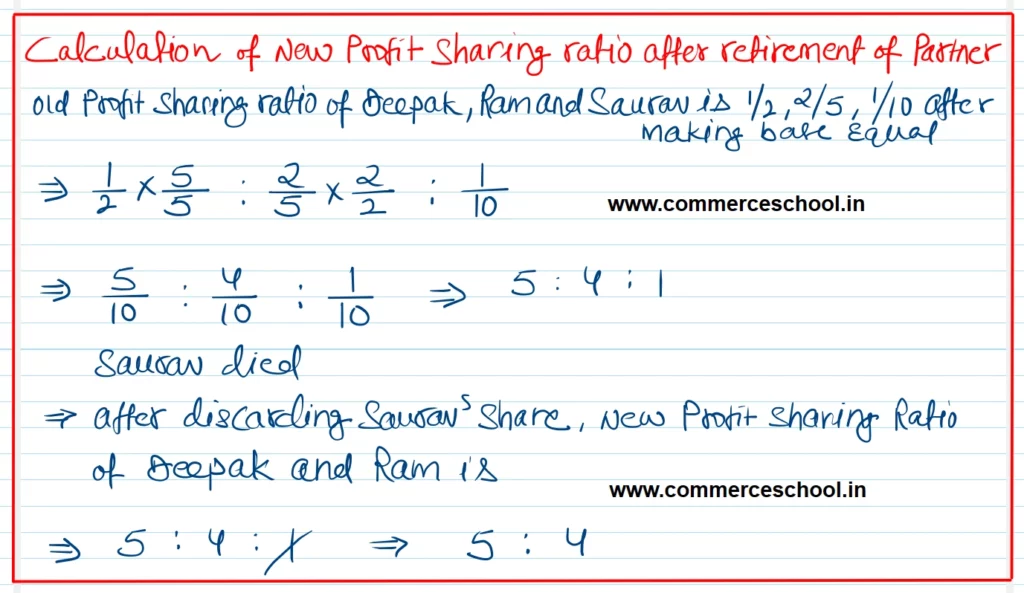 Calculation of New Profit Sharing ratio after retirement of Partner
old Profit Sharing ratio of Deepak, Ram and Saurav is 1/2, 2/5, 1/10 after
making base Equal
⇒ 1/2 × 5/5 : 2/5 × 2/2 : 1/10
www.commerceschool.in
⇒ 5/10 : 4/10 : 1/10 ⇒ 5 : 4 : 1
Saurav died
⇒ after discarding Saurav's Share, New Profit Sharing Ratio
of Deepak and Ram is
www.commerceschool.in
⇒ 5 : 4 : 1 ⇒ 5 : 4